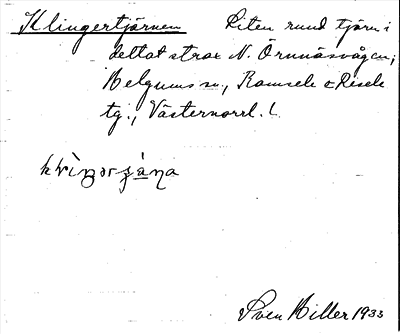 Klingertjärnen Liten rund tjärn i
deltat strax N. Örnnäsvågen,
Helgums sn., Ramsele & Resele
tg., Västernorrl. l.
Sven Hiller 1933